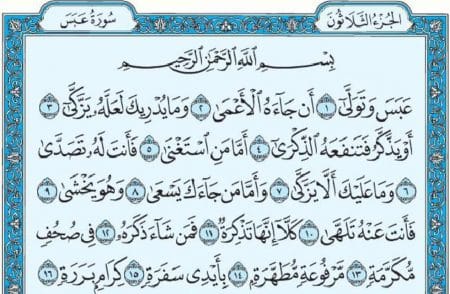 الجزء الثلاثون
سورة عبس
بِسْمِ ٱللَّهِ ٱلرَّحْمَٰنِ ٱلرَّحِيمِ
عَبَسَ وَتَوَلَّىٰٓ ١ أَن جَآءَهُ ٱلْأَعْمَىٰ ٢ وَمَا يُدْرِيكَ لَعَلَّهُۥ يَزَّكَّىٰٓ ٣
أَوْ يَذَّكَّرُ فَتَنفَعَهُ ٱلذِّكْرَىٰٓ ٤ أَمَّا مَنِ ٱسْتَغْنَىٰ ٥ فَأَنتَ لَهُۥ تَصَدَّىٰ
٦ وَمَا عَلَيْكَ أَلَّا يَزَّكَّىٰ ٧ وَأَمَّا مَن جَآءَكَ يَسْعَىٰ ٨ وَهُوَ يَخْشَىٰ ٩
فَأَنتَ عَنْهُ تَلَهَّىٰ ١٠ كَلَّآ إِنَّهَا تَذْكِرَةٌ ١١ فَمَن شَآءَ ذَكَرَهُۥ ١٢ فِى صُحُفٍ
مُّكَرَّمَةٍ ١٣ مَّرْفُوعَةٍ مُّطَهَّرَةٍۭ ١٤ بِأَيْدِى سَفَرَةٍ ١٥ كِرَامٍۭ بَرَرَةٍ ١٦